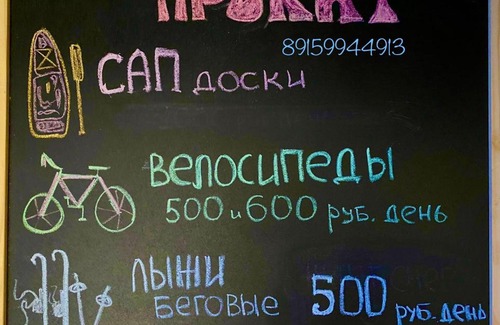 ПРОКАТ
89159944913
САП доски
Велосипеды
500 и 600 руб. день
Лыжи
беговые 500 руб. день